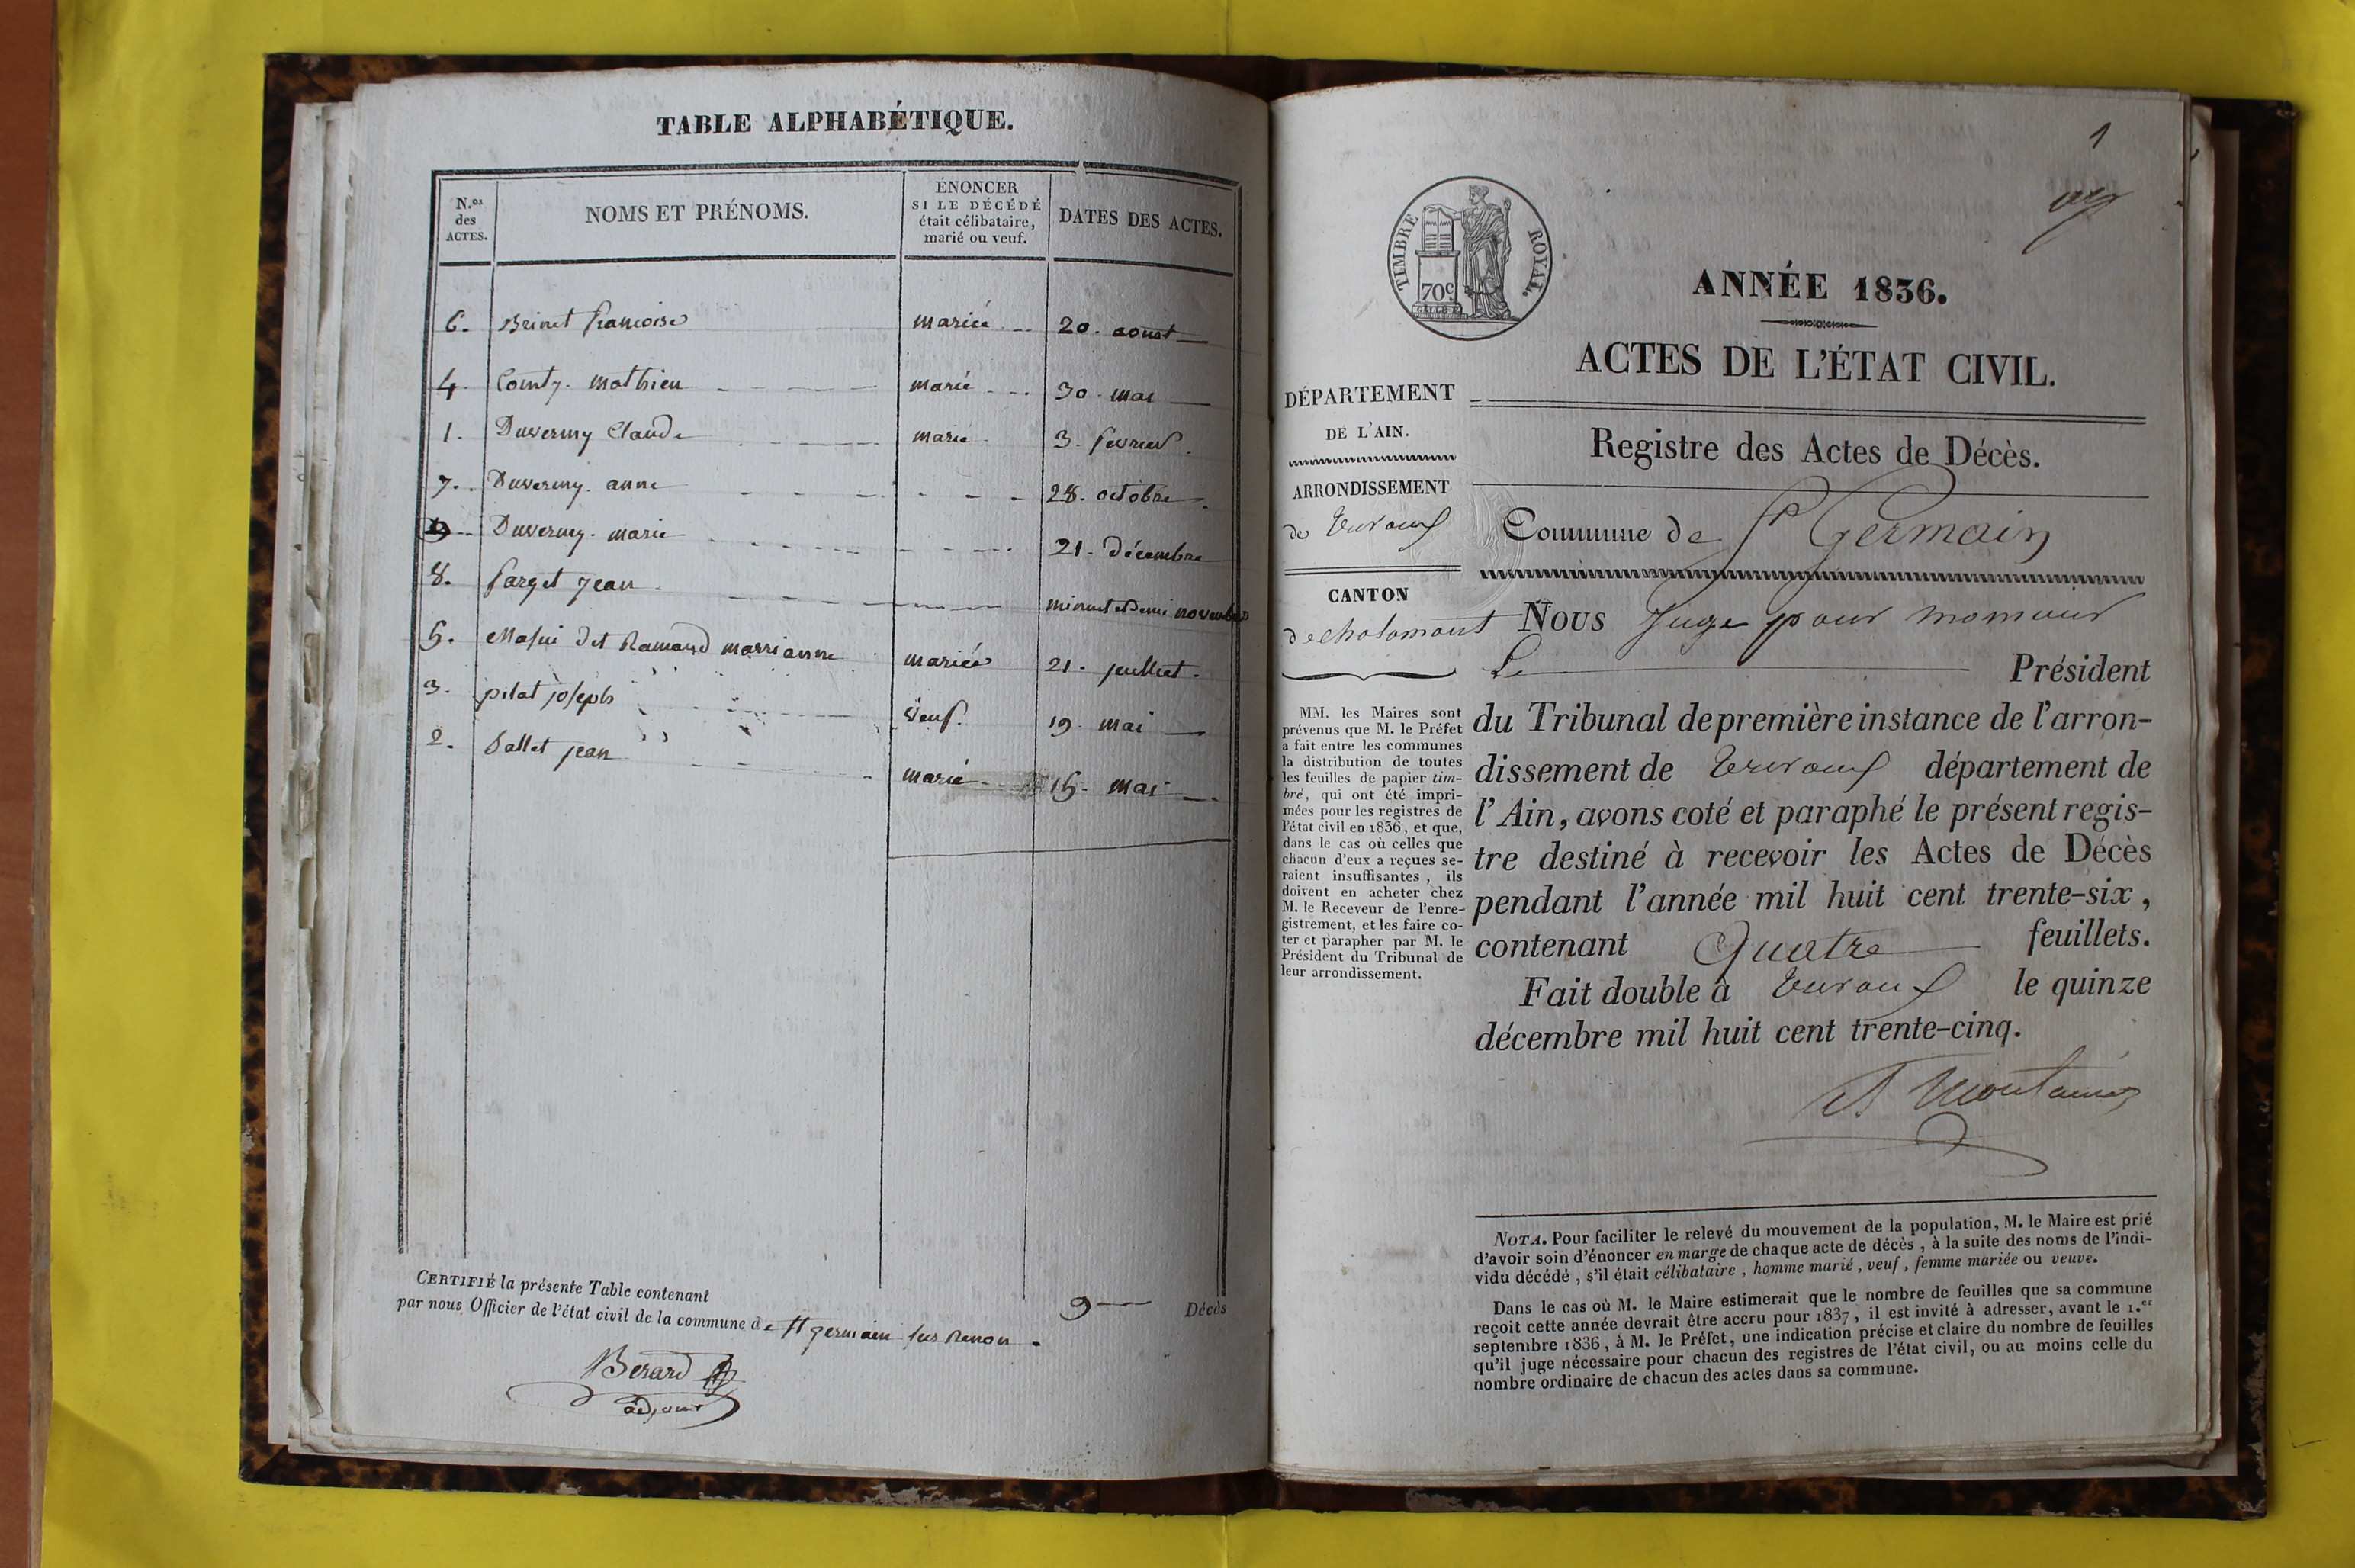 TABLE ALPHABÉTIQUE.
N.os des ACTES. NOMS ET PRÉNOMS. ÉNONCER SI LE DÉCÉDÉ était célibataire, marié ou veuf. DATES DES ACTES.
6. Brinet françoise mariée 20. aoust
4. Comty. mathieu marié 30. mai
1. Duverny Claude marié 3. fevrier.
7. Duverny. anne 28. octobre.
Duverny. marie 21. Décembre
8. farget jean novembre
5. dit Ramand marrianne mariée 21. juilliet.
3. pilat joseph veuf. 19. mai
2. Vallet jean marié 15. mai
CERTIFIÉ la présente Table contenant 9 Décès
par nous Officier de l'état civil de la commune de St germain sus Renon.
Berard
adjoint
1
TIMBRE ROYAL.
70c
ANNÉE 1836.
ACTES DE L'ÉTAT CIVIL.
DÉPARTEMENT
DE L'AIN.
ARRONDISSEMENT
de Trevoux
CANTON
de chalamont
MM. les Maires sont
prévenus que M. le Préfet
a fait entre les communes
la distribution de toutes
les feuilles de papier tim-
bré, qui ont été impri-
mées pour les registres de
l'état civil en 1836, et que,
dans le cas où celles que
chacun d'eux a reçues se-
raient insuffisantes, ils
doivent en acheter chez
M. le Receveur de l'enre-
gistrement, et les faire co-
ter et parapher par M. le
Président du Tribunal de
leur arrondissement.
Registre des Actes de Décès.
Commune de St Germain
Nous Juge pour monsieur
Le Président
du Tribunal de première instance de l'arron-
dissement de Trevoux département de
l'Ain, avons coté et paraphé le présent regis-
tre destiné à recevoir les Actes de Décès
pendant l'année mil huit cent trente-six,
contenant Quatre feuillets.
Fait double à Trevoux le quinze
décembre mil huit cent trente-cinq.
NOTA. Pour faciliter le relevé du mouvement de la population, M. le Maire est prié
d'avoir soin d'énoncer en marge de chaque acte de décès, à la suite des noms de l'indi-
vidu décédé, s'il était célibataire, homme marié, veuf, femme mariée ou veuve.
Dans le cas où M. le Maire estimerait que le nombre de feuilles que sa commune
reçoit cette année devrait être accru pour 1837, il est invité à adresser, avant le 1.er
septembre 1836, à M. le Préfet, une indication précise et claire du nombre de feuilles
qu'il juge nécessaire pour chacun des registres de l'état civil, ou au moins celle du
nombre ordinaire de chacun des actes dans sa commune.